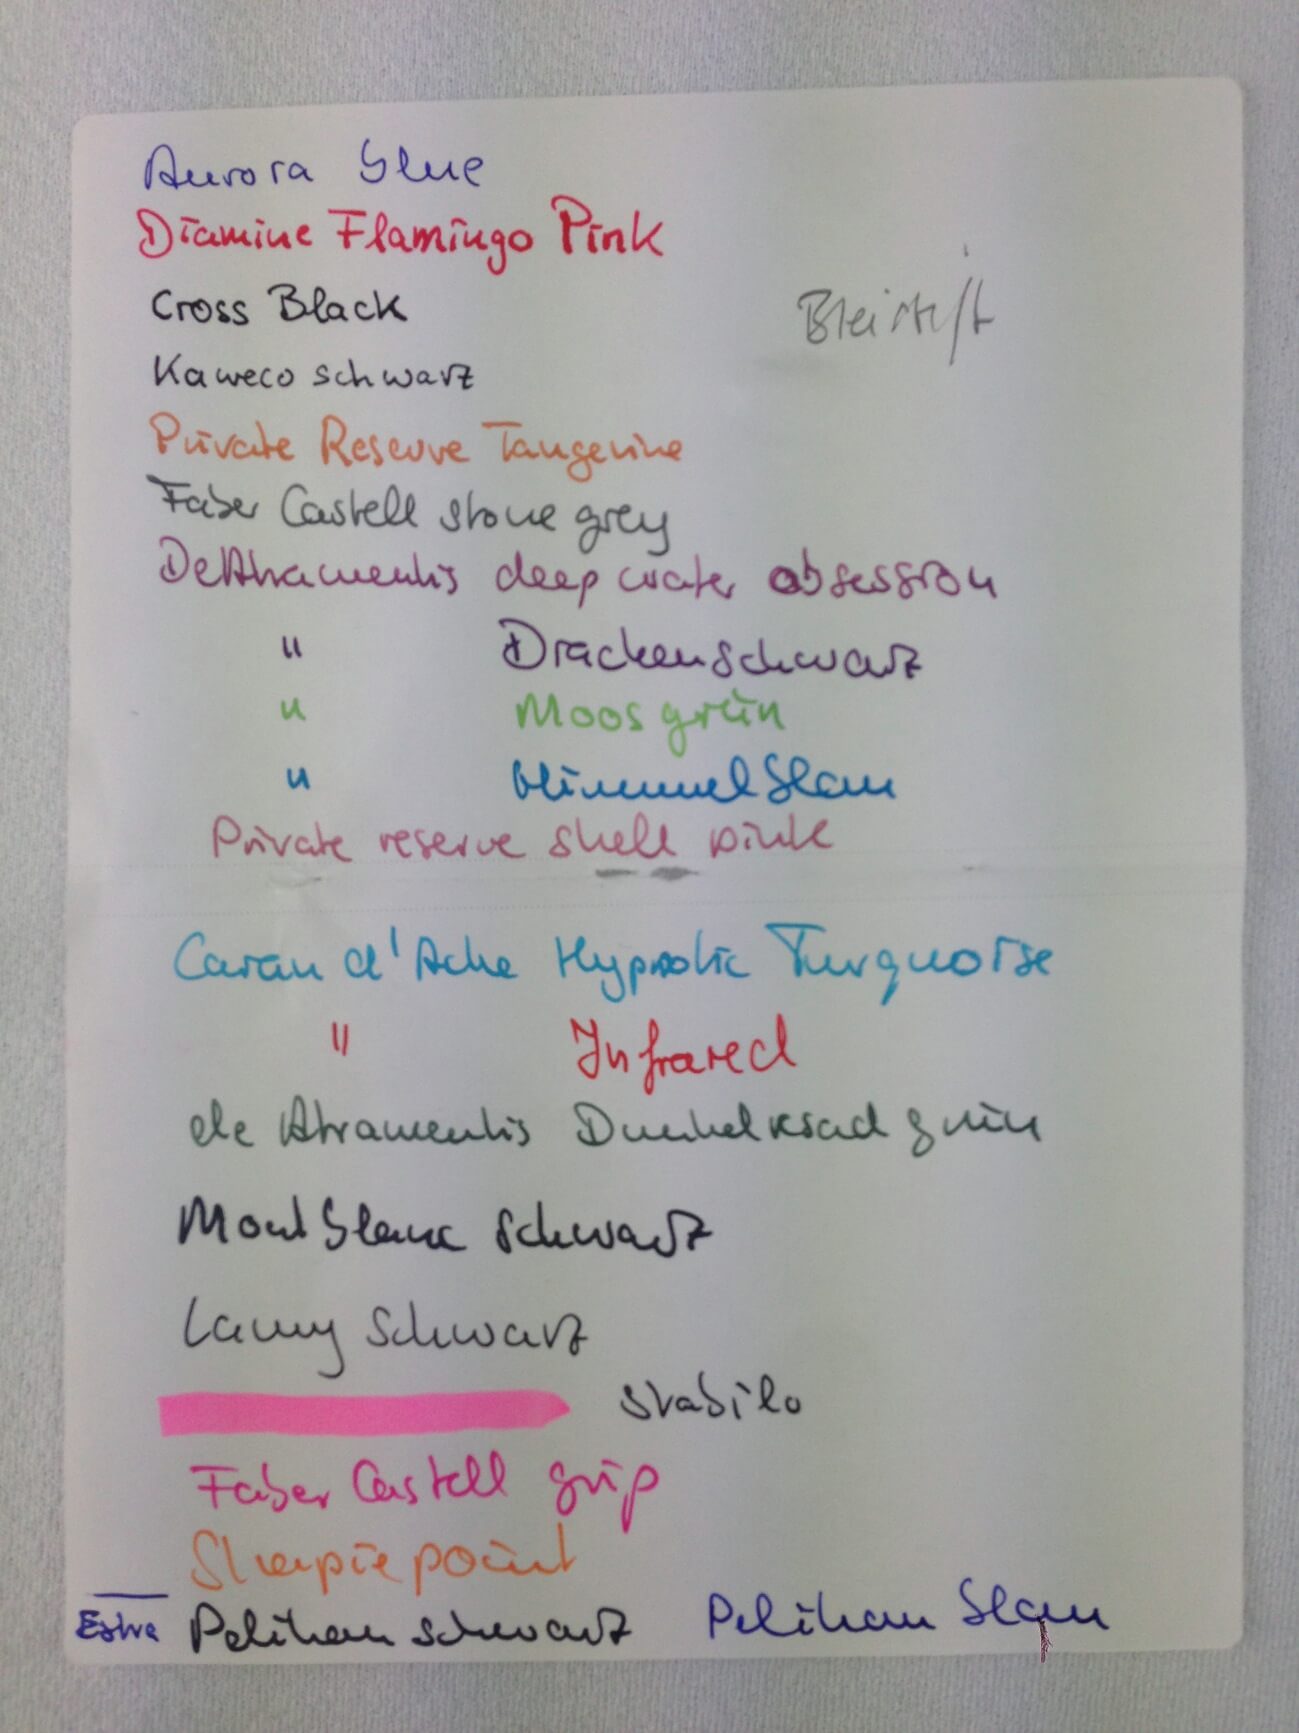 Aurora blue
Diamine Flamingo Pink
Cross Black
Bleistift
Kaweco schwarz
Private Reserve Tangerine
Faber Castell stone grey
DeAtramentis deep water obsession
" Drachenschwarz
" Moosgrün
" Himmelblau
Private reserve shell pink
Caran d'Ache Hypnotic Turquoise
" Infrared
de Atramentis Dunkel grün
Montblanc schwarz
Lamy schwarz
stabilo
Faber Castell grip
Sharpie point
Extra Pelikan schwarz Pelikan blau